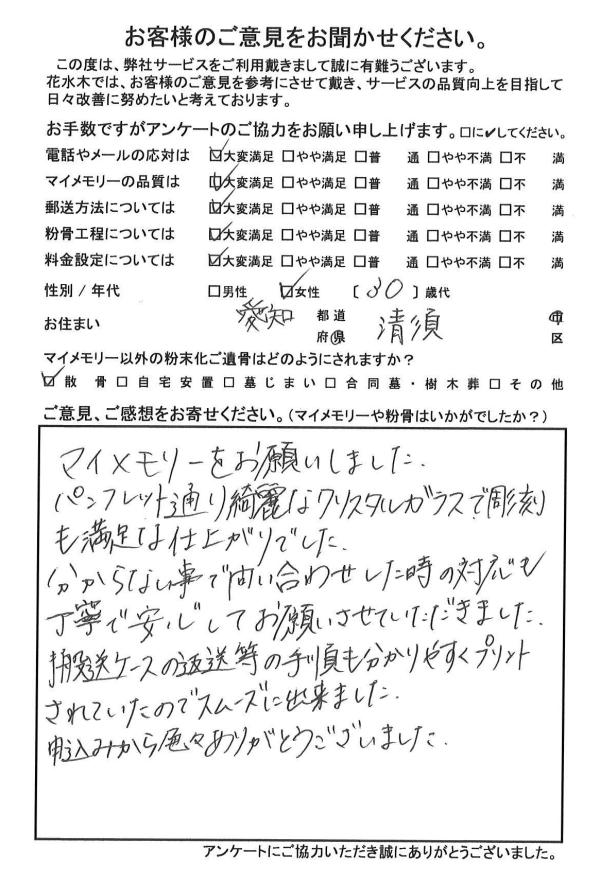 お客様のご意見をお聞かせください。
この度は、弊社サービスをご利用戴きまして誠に有難うございます。
花水木では、お客様のご意見を参考にさせて戴き、サービスの品質向上を目指して
日々改善に努めたいと考えております。
お手数ですがアンケートのご協力をお願い申し上げます。□に✔してください。
電話やメールの応対は ☑大変満足 □やや満足 □普 通 □やや不満 □不 満
マイメモリーの品質は ☑大変満足 □やや満足 □普 通 □やや不満 □不 満
郵送方法については ☑大変満足 □やや満足 □普 通 □やや不満 □不 満
粉骨工程については ☑大変満足 □やや満足 □普 通 □やや不満 □不 満
料金設定については ☑大変満足 □やや満足 □普 通 □やや不満 □不 満
性別/年代 □男性 ☑女性 〔 30 〕歳代
お住まい 愛知 都道府県 清須 市区
マイメモリー以外の粉末化ご遺骨はどのようにされますか?
☑散 骨 □自宅安置 □墓じまい □合同墓・樹木葬 □その他
ご意見、ご感想をお寄せください。(マイメモリーや粉骨はいかがでしたか?)
マイメモリーをお願いしました.
パンフレット通り綺麗なクリスタルガラスで彫刻
も満足な仕上がりでした.
分からない事で問い合わせした時の対応も
丁寧で安心してお願いさせていただきました.
搬送ケースの返送等の手順も分かりやすくプリント
されていたのでスムーズに出来ました.
申込みから色々ありがとうございました.
アンケートにご協力いただき誠にありがとうございました。